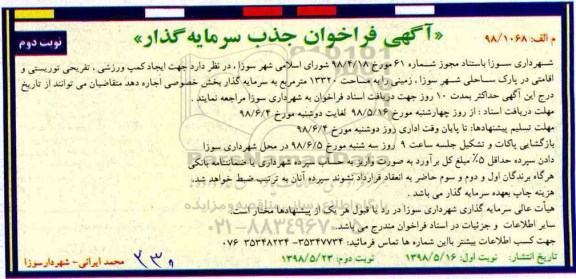 م الف: ۹۸/۱۰۶۸
«آگهی فراخوان جذب سرمایه‌گذار»
نوبت دوم
شهرداری سوزا باستناد مجوز شماره ۶۱ مورخ ۹۸/۴/۱۸ شورای اسلامی شهر سوزا، در نظر دارد جهت ایجاد کمپ ورزشی، تفریحی توریستی و
اقامتی در پارک ساحلی شهر سوزا، زمینی را به مساحت ۱۳۳۲۰ مترمربع به سرمایه‌گذار بخش خصوصی اجاره دهد متقاضیان می توانند از تاریخ
درج این آگهی حداکثر بمدت ۱۰ روز جهت دریافت اسناد فراخوان به شهرداری سوزا مراجعه نمایند.
مهلت دریافت اسناد: از روز چهارشنبه مورخ ۹۸/۵/۱۶ لغایت دوشنبه مورخ ۹۸/۶/۴
مهلت تسلیم پیشنهادها: تا پایان وقت اداری روز دوشنبه مورخ ۹۸/۶/۴
بازگشایی پاکات و تشکیل جلسه ساعت ۹ روز سه شنبه مورخ ۹۸/۶/۵ در محل شهرداری سوزا
دادن سپرده حداقل ۵٪ مبلغ کل برآورد به صورت واریز به حساب سپرده شهرداری یا ضمانتنامه بانکی
هرگاه برندگان اول و دوم و سوم حاضر به انعقاد قرارداد نشوند سپرده آنان به ترتیب ضبط خواهد شد.
هزینه چاپ بعهده سرمایه گذار می باشد.
هیأت عالی سرمایه گذاری شهرداری سوزا در رد یا قبول هر یک از پیشنهادها مختار است.
سایر اطلاعات و جزئیات در اسناد فراخوان مندرج می‌باشد.
جهت کسب اطلاعات بیشتر با این شماره ها تماس فرمائید: ۳۵۳۴۷۷۳۴-۳۵۳۴۸۲۳۴ ۰۷۶
تاریخ انتشار: نوبت اول: ۱۳۹۸/۵/۱۶ نوبت دوم: ۱۳۹۸/۵/۲۳
محمد ایرانی- شهردار سوزا
۰۲۱-۸۸۳۴۹۶۷۰-۵